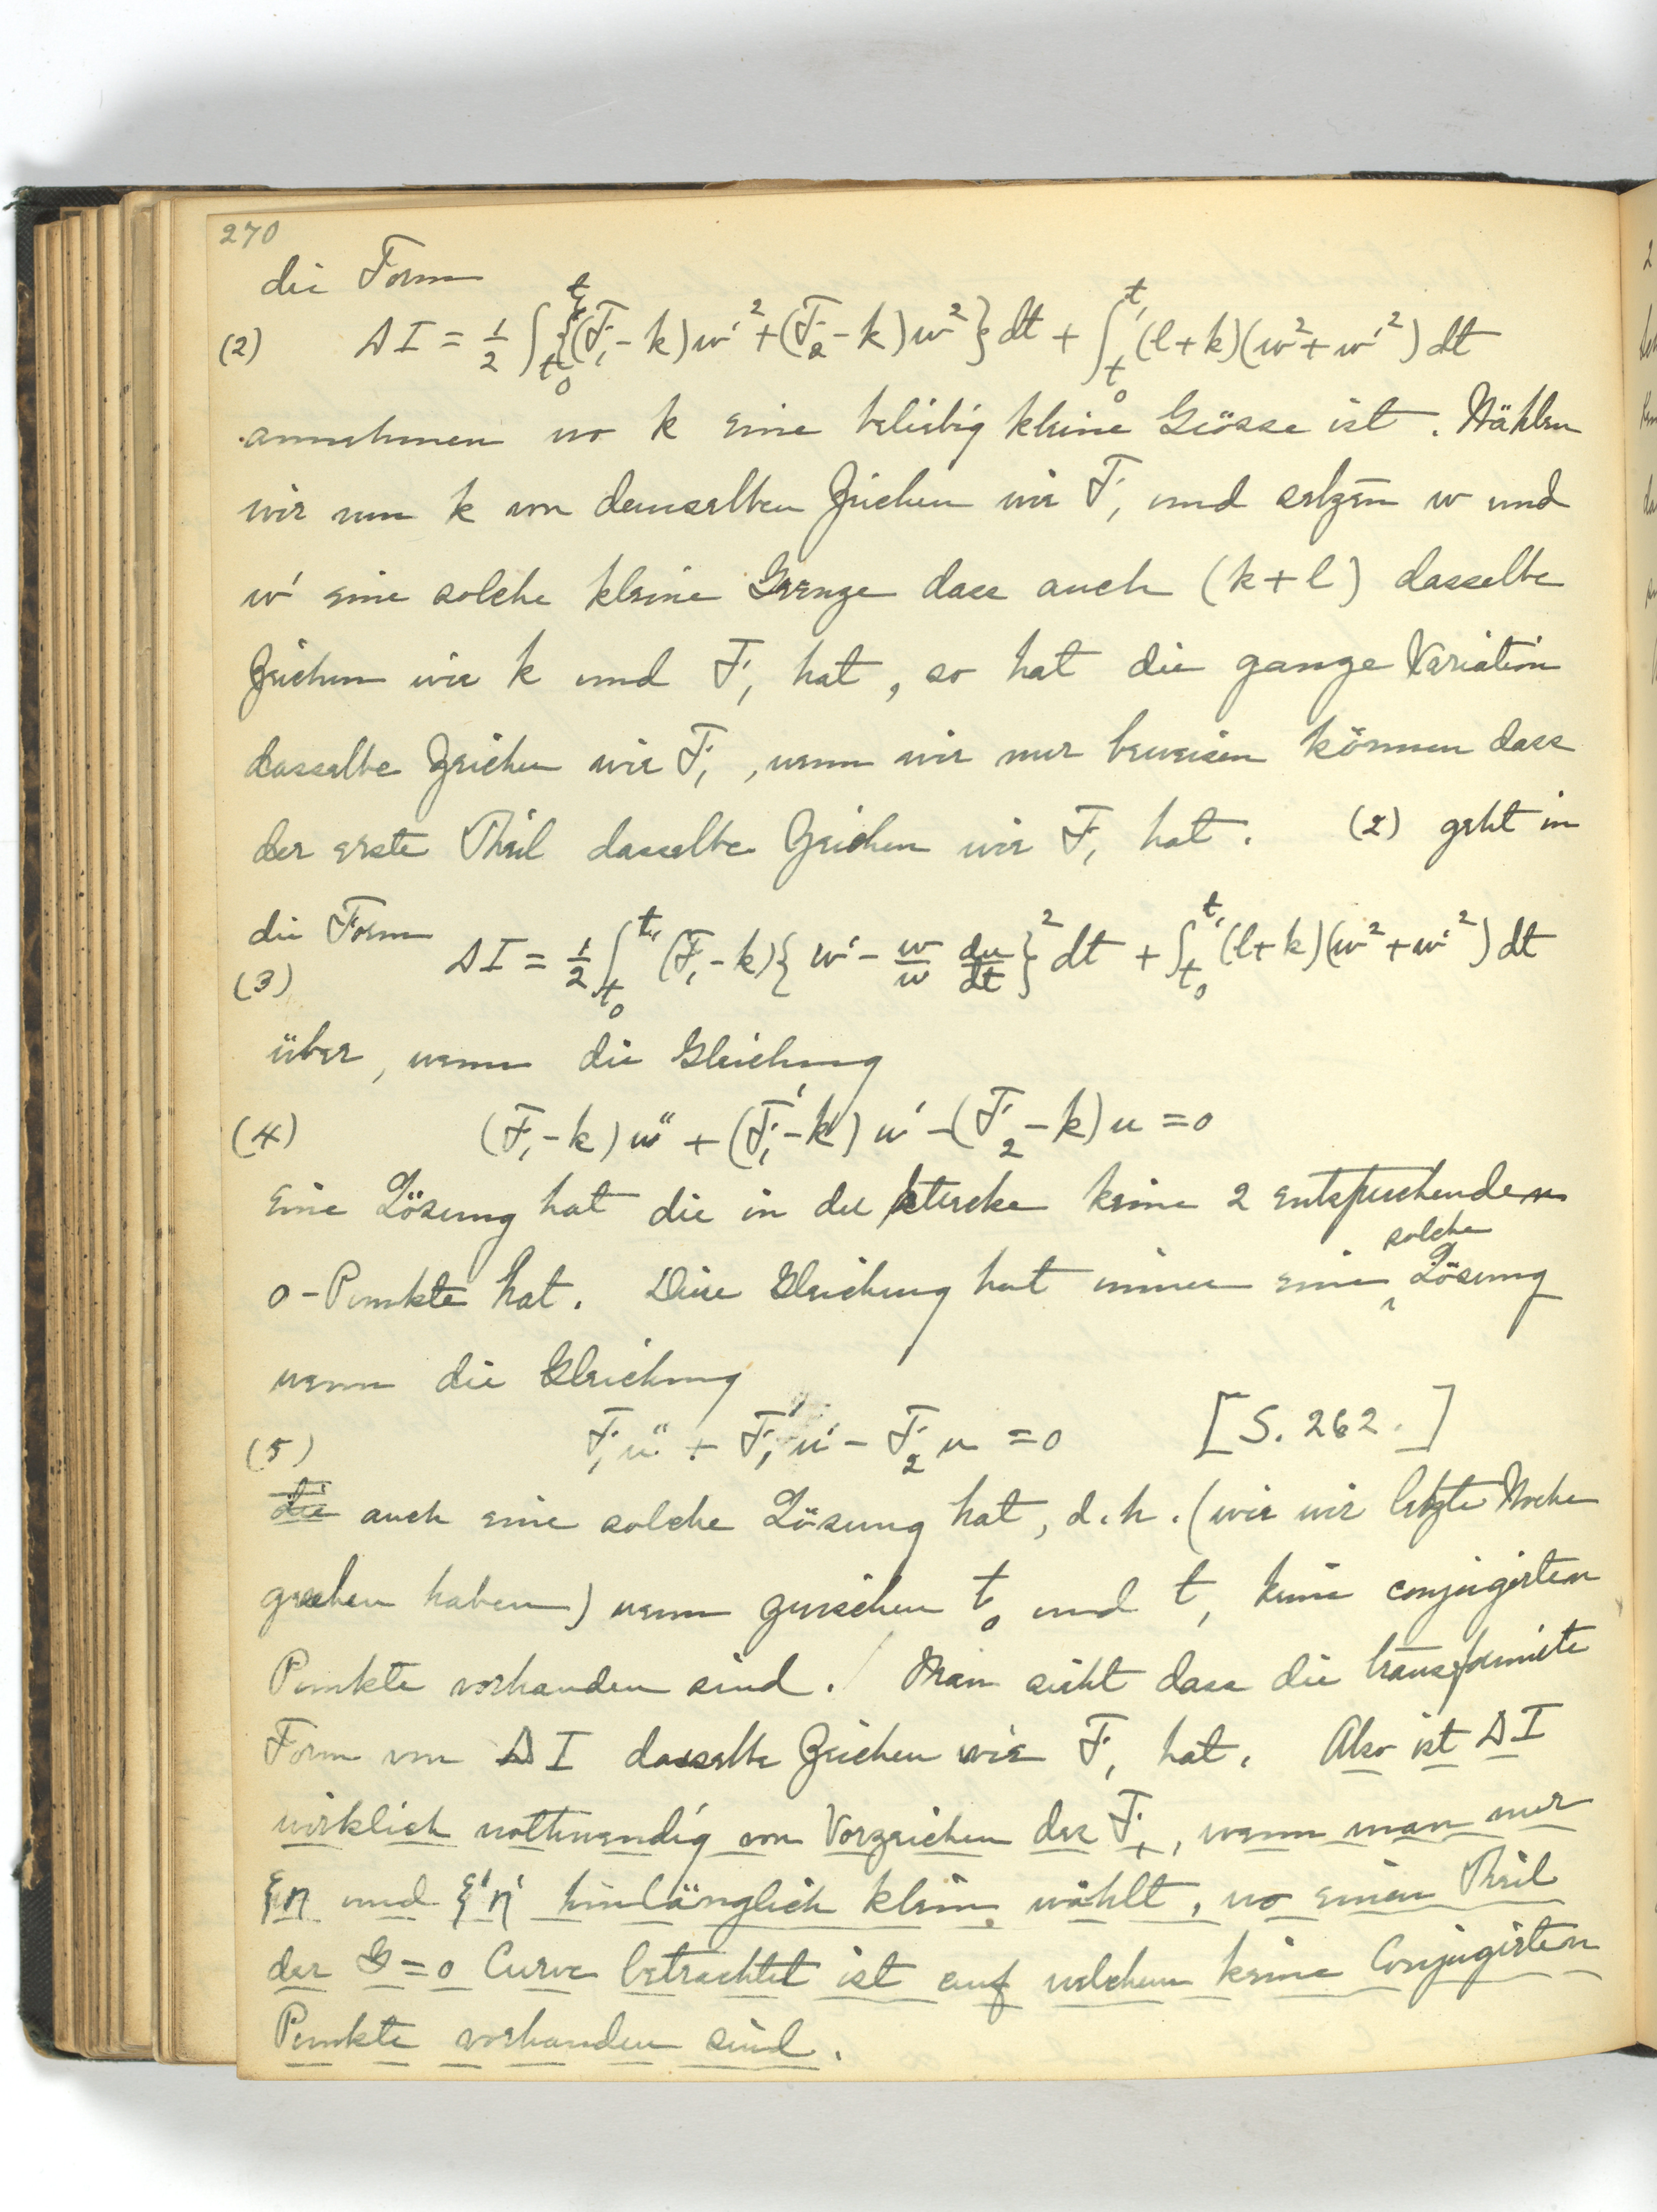 270
die Form
(2) ΔI = 1/2 ∫_{t_0}^{t_1} {(F_1 - k) w'^2 + (F_2 - k) w^2} dt + ∫_{t_0}^{t_1} (l + k)(w^2 + w'^2) dt
annehmen wo k eine beliebig kleine Grösse ist. Wählen
wir nun k von demselben Zeichen wie F_1 und setzen w und
w' eine solche kleine Grenze dass auch (k + l) dasselbe
Zeichen wie k und F_1 hat, so hat die ganze Variation
dasselbe Zeichen wie F_1, wenn wir nur beweisen können dass
der erste Theil dasselbe Zeichen wie F_1 hat. (2) geht in
die Form
(3) ΔI = 1/2 ∫_{t_0}^{t_1} (F_1 - k) { w' - w/u du/dt }^2 dt + ∫_{t_0}^{t_1} (l + k)(w^2 + w'^2) dt
über, wenn die Gleichung
(4) (F_1 - k) u'' + (F_1' - k') u' - (F_2 - k) u = 0
eine Lösung hat die in der Strecke keine 2 entsprechenden
0-Punkte hat. Diese Gleichung hat immer eine solche Lösung
wenn die Gleichung
(5) F_1 u'' + F_1' u' - F_2 u = 0 [S. 262.]
die auch eine solche Lösung hat, d.h. (wie wir letzte Woche
gesehen haben) wenn zwischen t_0 und t_1 keine conjugirten
Punkte vorhanden sind. / Man sieht dass die transformirte
Form von ΔI dasselbe Zeichen wie F_1 hat. Also ist ΔI
wirklich nothwendig von Vorzeichen des F_1, wenn man nur
ξη und ξ'η' hinlänglich klein wählt, wo einen Theil
der G = 0 Curve betrachtet ist auf welchem keine Conjugirten
Punkte vorhanden sind.